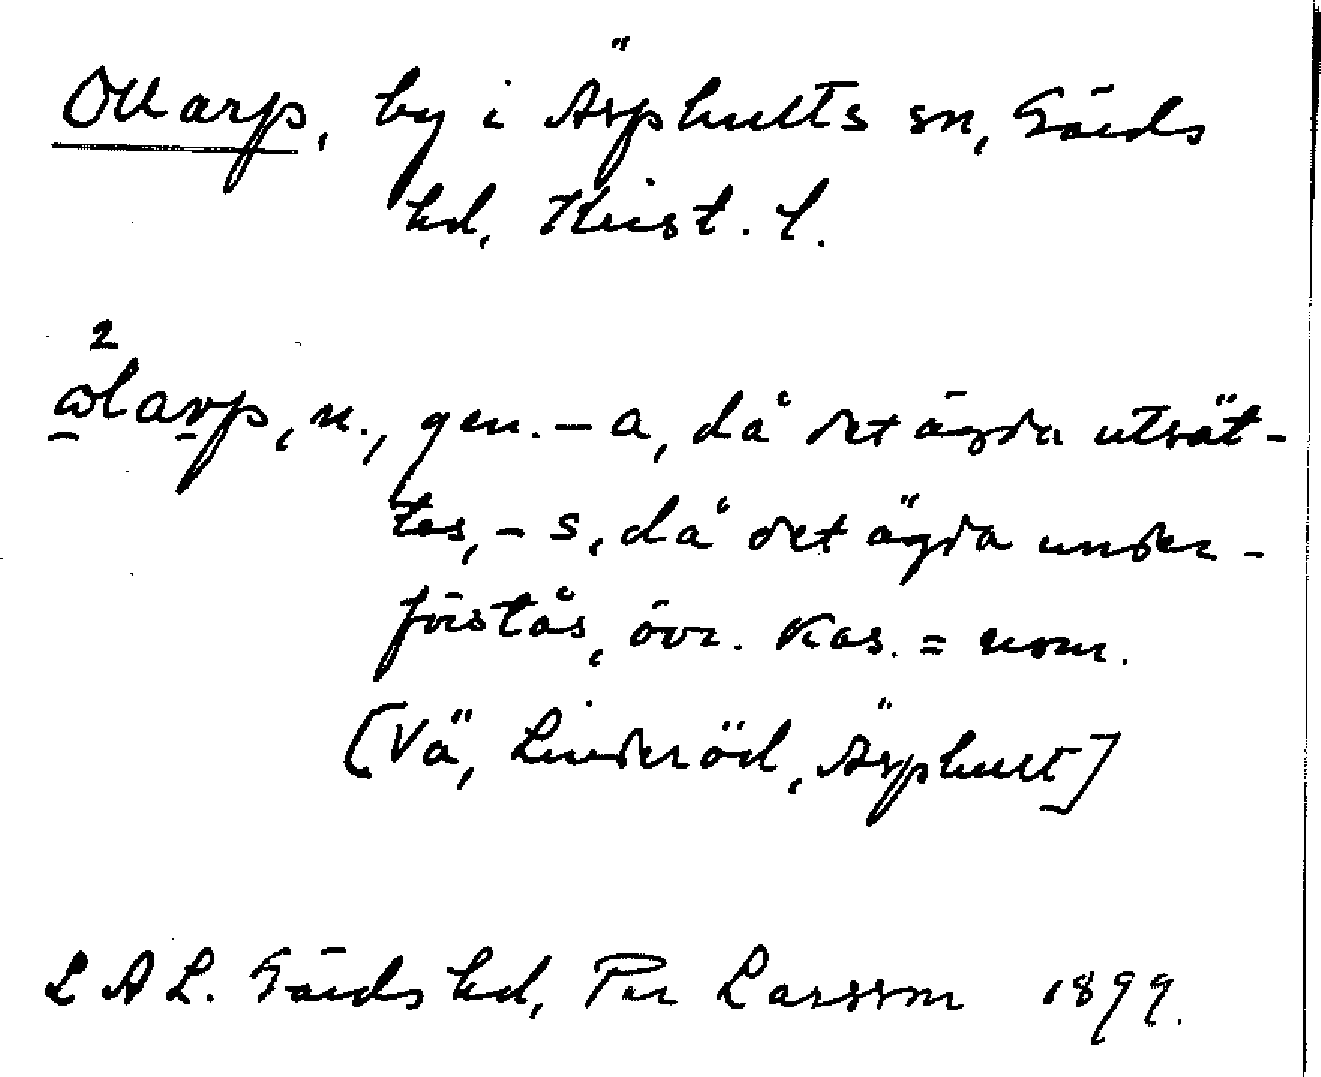 Ollarp, by i Äsphults sn, Gärds
hd, Krist. l.
2
ωlarp, n., gen. – a, då det ägda utsät-
tes, – s, då det ägda under-
förstås, övr. kas. = nom.
[Vä, Linderöd, Äsphult]
LAL. Gärds hd, Per Larsson 1899.